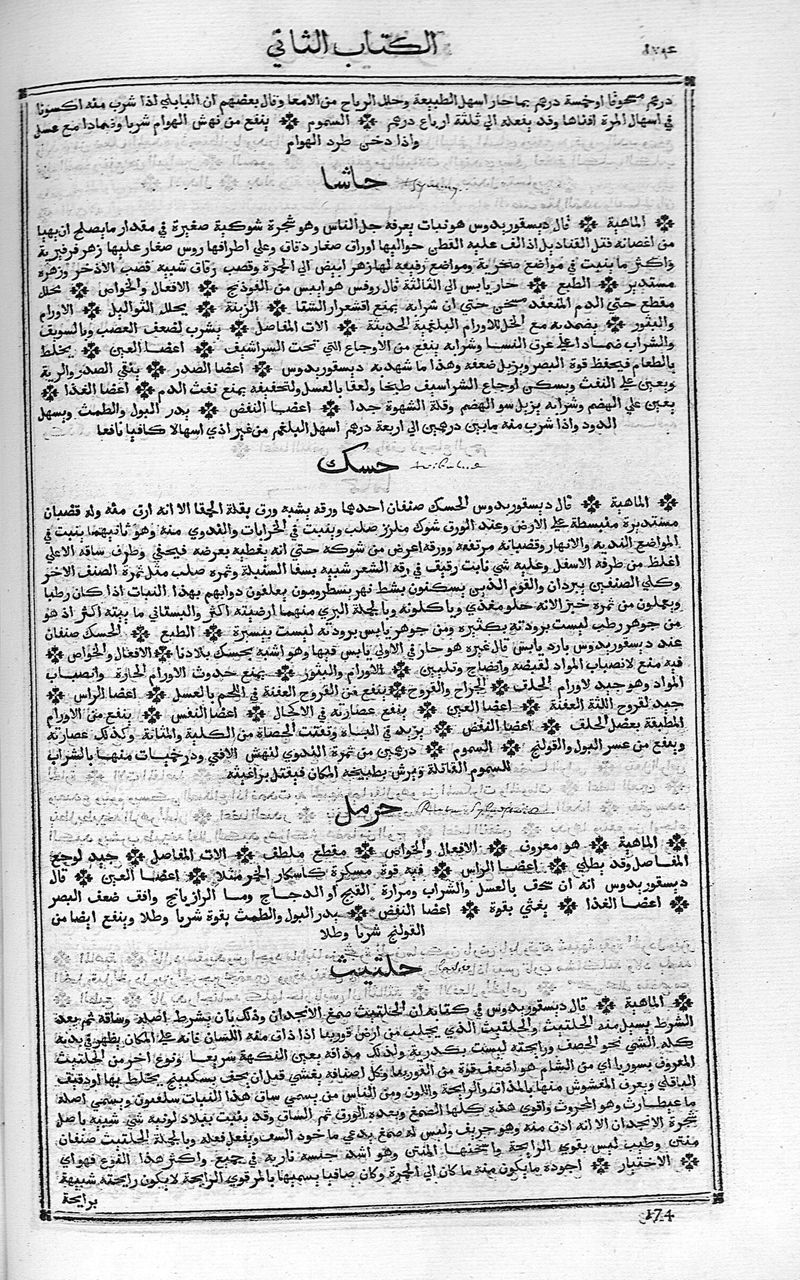 الكتاب الثاني
درهم مسحوقا او خمسة درهم بماء حار اسهل الطبيعة وحلل الرياح من الامعا وقال بعضهم ان البابلي اذا شرب منه اكسوثا
في اسهال المرة افناها وقد يفعله الي ثلثة ارباع درهم السموم ينفع من نهش الهوام شربا وضمادا مع عسل
واذا دخن طرد الهوام
حاشا
الماهية قال ديسقوريدوس هو نبات يعرفه جل الناس وهو شجرة شوكية صغيرة في مقدار ما يصلح ان يهيا
من اغصانه فتل القناديل اذا لف عليه القطن حواليها اوراق صغار دقاق وعلي اطرافها روس صغار عليها زهر فرفيرية
واكثر ما ينبت في مواضع صخرية ومواضع رقيقه لها زهر ابيض الي الحمرة وقصب رقاق شبيه قصب الاذخر وزهره
مستدير الطبع حار يابس الي الثالثة قال روفس هو ايبس من الفوذنج الافعال والخواص محلل
مقطع حتي الدم المنعقد مسخن حتي ان شرابه يمنع اقشعرار الشتا الزينة يحلل الثواليل الاورام
والبثور يضمد به مع الخل للاورام البلغمية الحديثة الات المفاصل يشرب لضعف العصب وبالسويق
والشراب ضمادا علي عرق النسا وشرابه ينفع من الاوجاع التي تحت الشراسيف اعضا العين يخلط
بالطعام فيحفظ قوة البصر ويزيل ضعفه وهذا ما شهد به ديسقوريدوس اعضا الصدر ينقي الصدر والرية
ويعين علي النفث ويسكن اوجاع الشراسيف طبخا ولعقا بالعسل ولتجفيفه يمنع نفث الدم اعضا الغذا
يعين علي الهضم وشرابه يزيل سو الهضم وقلة الشهوة جدا اعضا النفض يدر البول والطمث ويسهل
الدود واذا شرب منه ما بين درهمين الي اربعة درهم اسهل البلغم من غير اذي اسهالا كافيا نافعا
حسك
الماهية قال ديسقوريدوس الحسك صنفان احدهما ورقه يشبه ورق بقلة الحمقا الا انه ارق منه وله قضبان
مستديرة منبسطة علي الارض وعند الورق شوك ملزز صلب وينبت في الخرابات والفدوي منه وهو ثانيهما ينبت في
المواضع الندية والانهار وقضبانه مرتفعة وورقه اعرض من شوكه حتي انه يغطيه بعرضه فيخفي وطرف ساقه الاعلي
اغلظ من طرفه الاسفل وعليه شي نابت رقيق في رقه الشعر شبيه بسفا السنبلة وثمره صلب مثل ثمرة الصنف الاخر
وكلي الصنفين يبردان والقوم الذين يسكنون بشط نهر بسطرومون يعلفون دوابهم بهذا النبات اذا كان رطبا
ويعملون من ثمره خبز الانه حلو مغذي وياكلونه وبالجملة البري منهما ارضيته اكثر والبستاني ما ييته اكثر اذ هو
من جوهر رطب ليست برودته بكثيره ومن جوهر يابس برودته ليست بيسيرة الطبع الحسك صنفان
عند ديسقوريدوس بارد يابس قال غيره هو حار في الاولي يابس فيها وهو اشبه بحسك بلادنا الافعال والخواص
فيه منع لانصباب المواد لقبضه وانضاج وتليين الاورام والبثور يمنع حدوث الاورام الحارة وانصباب
المواد وهو جيد لاورام الحلق الجراح والقروح ينفع من القروح العفنة في اللحم بالعسل اعضا الراس
جيد لقروح اللثة العفنة اعضا العين ينفع عصارته في الاكحال اعضا النفس ينفع من الاورام
المطبقة بعضل الحلق اعضا النفض يزيد في الباه ويفتت الحصاة من الكلية والمثانة وكذلك عصارته
وينفع من عسر البول والقولنج السموم درهمين من ثمرة الفدوي لنهش الافعي ودرخميات منها بالشراب
للسموم القاتلة ويرش بطبيخه المكان فيقتل براغيثه
حرمل
الماهية هو معروف الافعال والخواص مقطع ملطف الات المفاصل جيد لوجع
المفاصل وقد يطلي اعضا الراس فيه قوة مسكرة كاسكار الخمر مثلا اعضا العين قال
ديسقوريدوس انه ان سحق بالعسل والشراب ومرارة القبج او الدجاج وما الرازيانج وافق ضعف البصر
اعضا الغذا يغثي بقوة اعضا النفض يدر البول والطمث بقوة شربا وطلا وينفع ايضا من
القولنج شربا وطلا
حلتيت
الماهية قال ديسقوريدوس في كتابه ان الحلتيت صمغ الانجدان وذلك بان يشرط اصله وساقه ثم بعد
الشرط يسيل منه الحلتيت والحلتيت الذي يجلب من ارض قورينا اذا ذاق منه اللسان فانه علي المكان يظهر في بدنه
كله الشي نحو الحصف ورايحته ليست بكدرية ولذلك مذاقه يعين النكهة شريعا ونوع اخر من الحلتيت
المعروف بسوريا اي من الشام هو اضعف قوة من القورينا وكل اصنافه يغش قبل ان يجف بسكبينج يخلط بها او دقيق
الباقلي ويعرف المغشوش منها بالمذاق والرايحة واللون ومن الناس من يسمي ساق هذا النبات سلفيون ويسمي اصله
ماغيطارث وهو المحروث واقوي هذه كلها الصمغ وبعده الورق ثم الساق وقد ينبت ببلاد لونيه شي شبيه باصل
شجرة الانجدان الا انه ادق منه وهو حريف وليس له صمغ يدعي ماخود السف ويفعل فعله وبالجملة الحلتيت صنفان
منتن وطيب ليس بقوي الرايحة واسخنها المنتن وهو اشد جنسه نارية في جميع واكثر هذا النوع فهواي
الاختيار اجوده ما يكون منه ما كان الي الحمرة وكان صافيا يسميها بالمر قوي الرايحة لا يكون رايحته شبيهة
برايحة
174